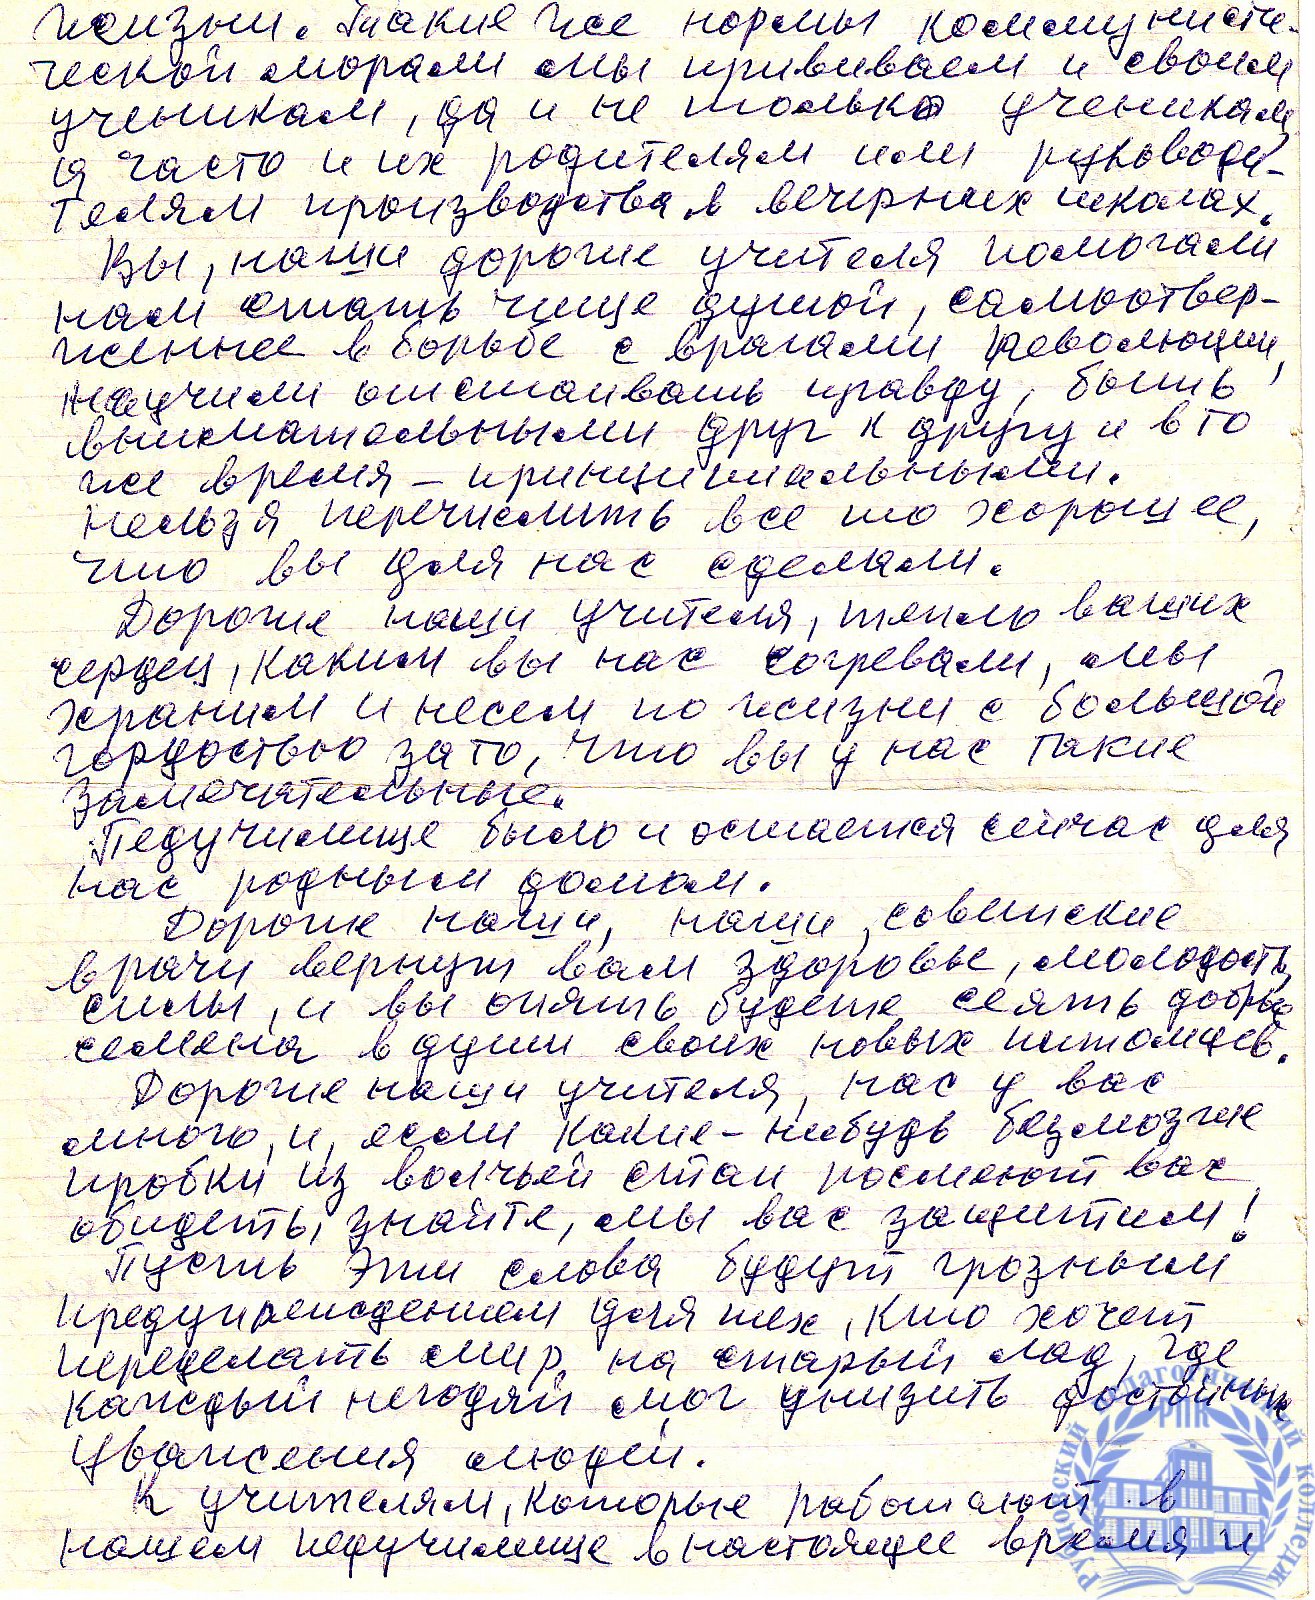 жизни. Такие же нормы коммунисти-
ческой морали мы прививаем и своим
ученикам, да и не только ученикам,
а часто и их родителям или руководи-
телям производства в вечерних школах.
Вы, наши дорогие учителя помогали
нам стать чище душой, самоотвер-
женнее в борьбе с врагами революции,
научили отстаивать правду, быть
внимательными друг к другу и в то
же время – принципиальными.
Нельзя перечислить все то хорошее,
что вы для нас сделали.
Дорогие наши учителя, тепло ваших
сердец, каким вы нас согревали, мы
храним и несем по жизни с большой
гордостью за то, что вы у нас такие
замечательные.
Педучилище было и остается сейчас для
нас родным домом.
Дорогие наши, наши советские
врачи вернут вам здоровье, молодость,
силы, и вы опять будете сеять добрые
семена в души своих новых питомцев.
Дорогие наши учителя, нас у вас
много, и, если какие-нибудь безмозгие
пробки из волчьей стаи посмеют вас
обидеть, знайте, мы вас защитим!
Пусть эти слова будут грозным
предупреждением для тех, кто хочет
переделать мир на старый лад, где
каждый негодяй мог унизить достойных
уважения людей.
К учителям, которые работают в
нашем педучилище в настоящее время и
Рубцовский педагогический колледж
РПК